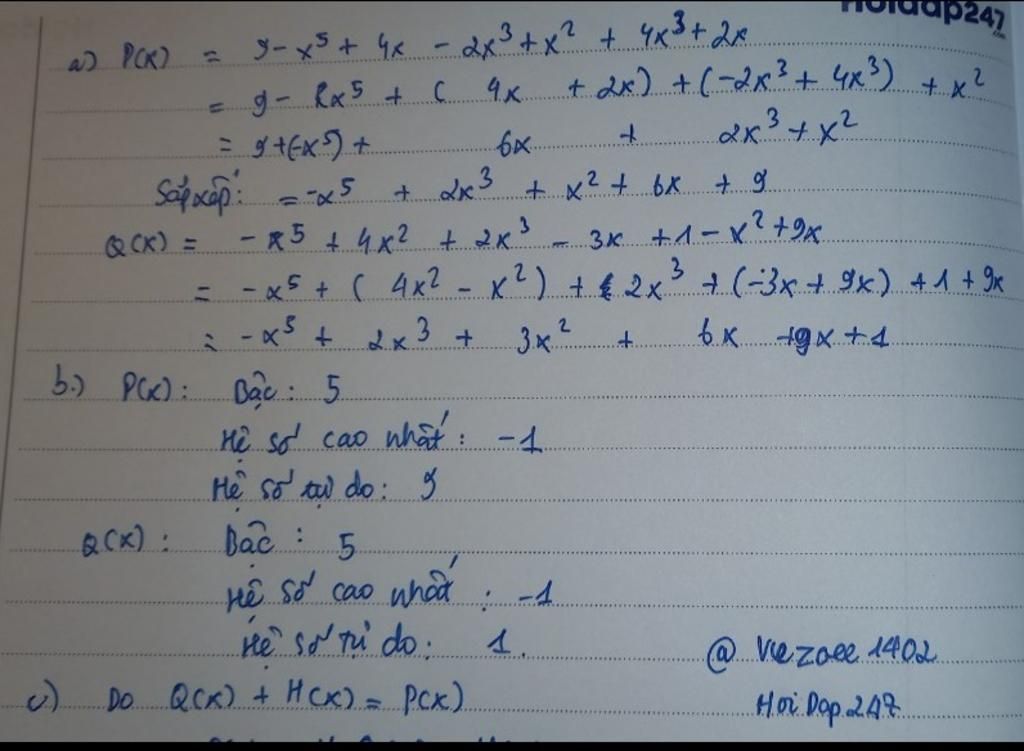 Hoidap247
a) P(x) = 9 - x⁵ + 4x - 2x³ + x² + 4x³ + 2x
= 9 - x⁵ + ( 4x + 2x ) + (-2x³ + 4x³) + x²
= 9 + (-x⁵) + 6x + 2x³ + x²
Sắp xếp: = -x⁵ + 2x³ + x² + 6x + 9
Q(x) = - x⁵ + 4x² + 2x³ - 3x + 1 - x² + 9x
= -x⁵ + ( 4x² - x² ) + 2x³ + (-3x + 9x) + 1 + 9x
= -x⁵ + 2x³ + 3x² + 6x + 9x + 1
b.) P(x) : Bậc : 5
Hệ số cao nhất : -1
Hệ số tự do : 9
Q(x) : Bậc : 5
Hệ số cao nhất : -1
Hệ số tự do : 1.
@ Viezoee 1402
c) Do Q(x) + H(x) = P(x)
Hoi Dap 247